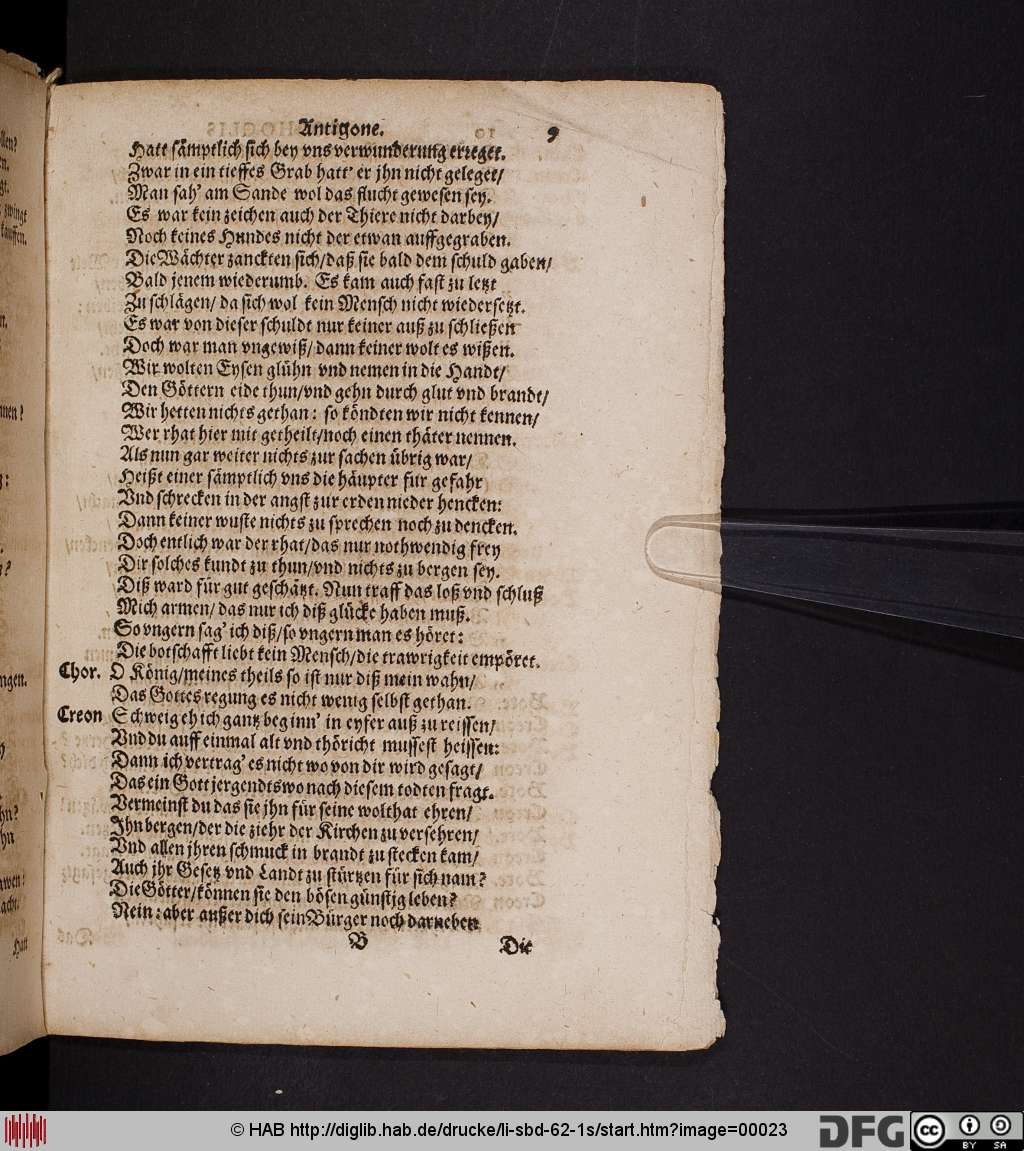 Antigone. 9
Hatt sämptlich sich bey vns verwunderung erreget.
Zwar in ein tieffes Grab hatt' er jhn nicht geleget/
Man sah' am Sande wol das flucht gewesen sey.
Es war kein zeichen auch der Thiere nicht darbey/
Noch keines Hundes nicht der etwan auffgegraben.
Die Wächter zanckten sich/daß sie bald dem schuld gaben/
Bald jenem wiederumb. Es kam auch fast zu letzt
Zu schlägen/ da sich wol kein Mensch nicht wiedersetzt.
Es war von dieser schuldt nur keiner auß zu schließen
Doch war man vngewiß/dann keiner wolt es wißen.
Wir wolten Eysen glühn vnd nemen in die Handt/
Den Göttern eide thun/vnd gehn durch glut vnd brandt/
Wir hetten nichts gethan: so köndten wir nicht kennen/
Wer rhat hier mit getheilt/noch einen thäter nennen.
Als nun gar weiter nichts zur sachen übrig war/
Heißt einer sämptlich vns die häupter für gefahr
Vnd schrecken in der angst zur erden nieder hencken:
Dann keiner wuste nichts zu sprechen noch zu dencken.
Doch entlich war der rhat/das nur nothwendig frey
Dir solches kundt zu thun/vnd nichts zu bergen sey.
Diß ward für gut geschätzt. Nun traff das loß vnd schluß
Mich armen/ das nur ich diß glücke haben muß.
So vngern sag' ich diß/so vngern man es höret:
Die botschafft liebt kein Mensch/die trawrigkeit empöret.
Chor. O König/meines theils so ist nur diß mein wahn/
Das Gottes regung es nicht wenig selbst gethan.
Creon Schweig eh ich gantz beginn' in eyfer auß zu reissen/
Vnd du auff einmal alt vnd thöricht mussest heissen:
Dann ich vertrag' es nicht wo von dir wird gesagt/
Das ein Gott jergendtswo nach diesem todten fragt.
Vermeinst du das sie jhn für seine wolthat ehren/
Jhn bergen/der die ziehr der Kirchen zu versehren/
Vnd allen jhren schmuck in brandt zu stecken kam/
Auch jhr Gesetz vnd Landt zu stürtzen für sich nam?
Die Götter/können sie den bösen günstig leben?
Nein: aber außer dich sein Bürger noch darneben
B Die
© HAB http://diglib.hab.de/drucke/li-sbd-62-1s/start.htm?image=00023
DFG
cc BY SA